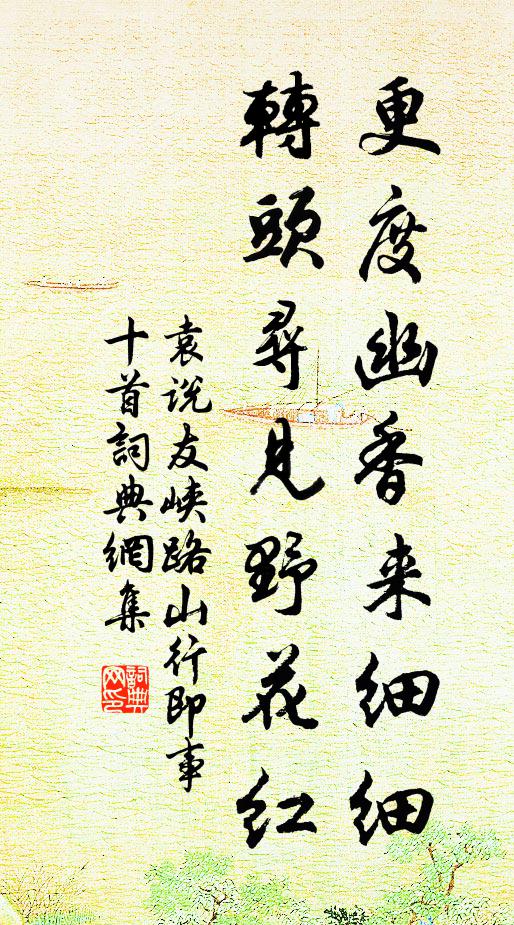 更度幽香来细细
轉頭尋見野花红
袁说友峡路山行即事
十首詞典網集
詞典
网印